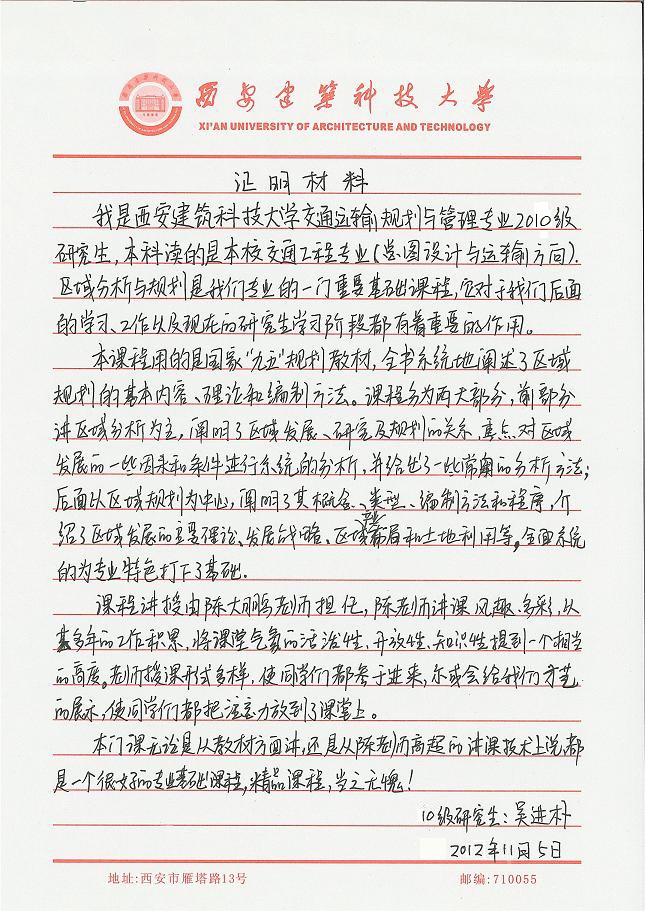 西安建筑科技大学
XI'AN UNIVERSITY OF ARCHITECTURE AND TECHNOLOGY
证明材料
我是西安建筑科技大学交通运输规划与管理专业2010级
研究生,本科读的是本校交通工程专业(总图设计与运输方向).
区域分析与规划是我们专业的一门重要基础课程,它对于我们后面
的学习、工作以及现在的研究生学习阶段都有着重要的作用。
本课程用的是国家“九五”规划教材,全书系统地阐述了区域
规划的基本内容、理论和编制方法。课程分为两大部分,前部分
讲区域分析为主,阐明了区域发展、研究及规划的关系,重点对区域
发展的一些因素和条件进行系统的分析,并给出了一些常用的分析方法;
后面以区域规划为中心,阐明了其概念、类型、编制方法和程序,介
绍了区域发展的主要理论、发展战略、区域产业布局和土地利用等,全面系统
的为专业特色打下了基础.
课程讲授由陈大鹏老师担任,陈老师讲课风趣、多彩,从
其多年的工作积累,将课堂气氛的活泼性、开放性、知识性提到一个相当
的高度。老师授课形式多样,使同学们都参于进来,尔或会给我们才艺
的展示,使同学们都把注意力放到了课堂上。
本门课无论是从教材方面讲,还是从陈老师高超的讲课技术上说,都
是一个很好的专业基础课程,精品课程,当之无愧!
10级研究生:吴进朴
2012年11月5日
地址:西安市雁塔路13号
邮编:710055